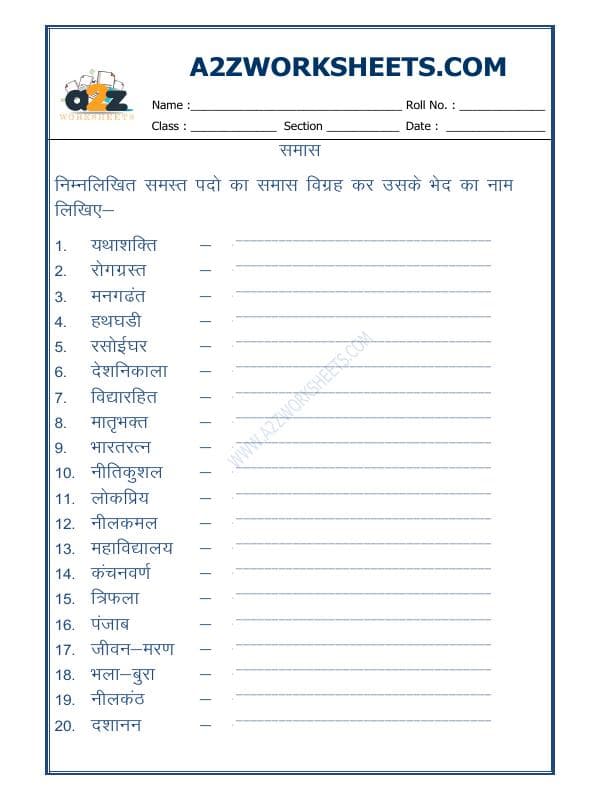 A2ZWORKSHEETS.COM
a2z
WORKSHEETS
Name :______________________________ Roll No. : ____________
Class : ____________ Section __________ Date : ______________
समास
निम्नलिखित समस्त पदो का समास विग्रह कर उसके भेद का नाम
लिखिए–
1. यथाशक्ति –
2. रोगग्रस्त –
3. मनगढंत –
4. हथघडी –
5. रसोईघर –
6. देशनिकाला –
7. विद्यारहित –
8. मातृभक्त –
9. भारतरत्न –
10. नीतिकुशल –
11. लोकप्रिय –
12. नीलकमल –
13. महाविद्यालय –
14. कंचनवर्ण –
15. त्रिफला –
16. पंजाब –
17. जीवन–मरण –
18. भला–बुरा –
19. नीलकंठ –
20. दशानन –
WWW.A2ZWORKSHEETS.COM